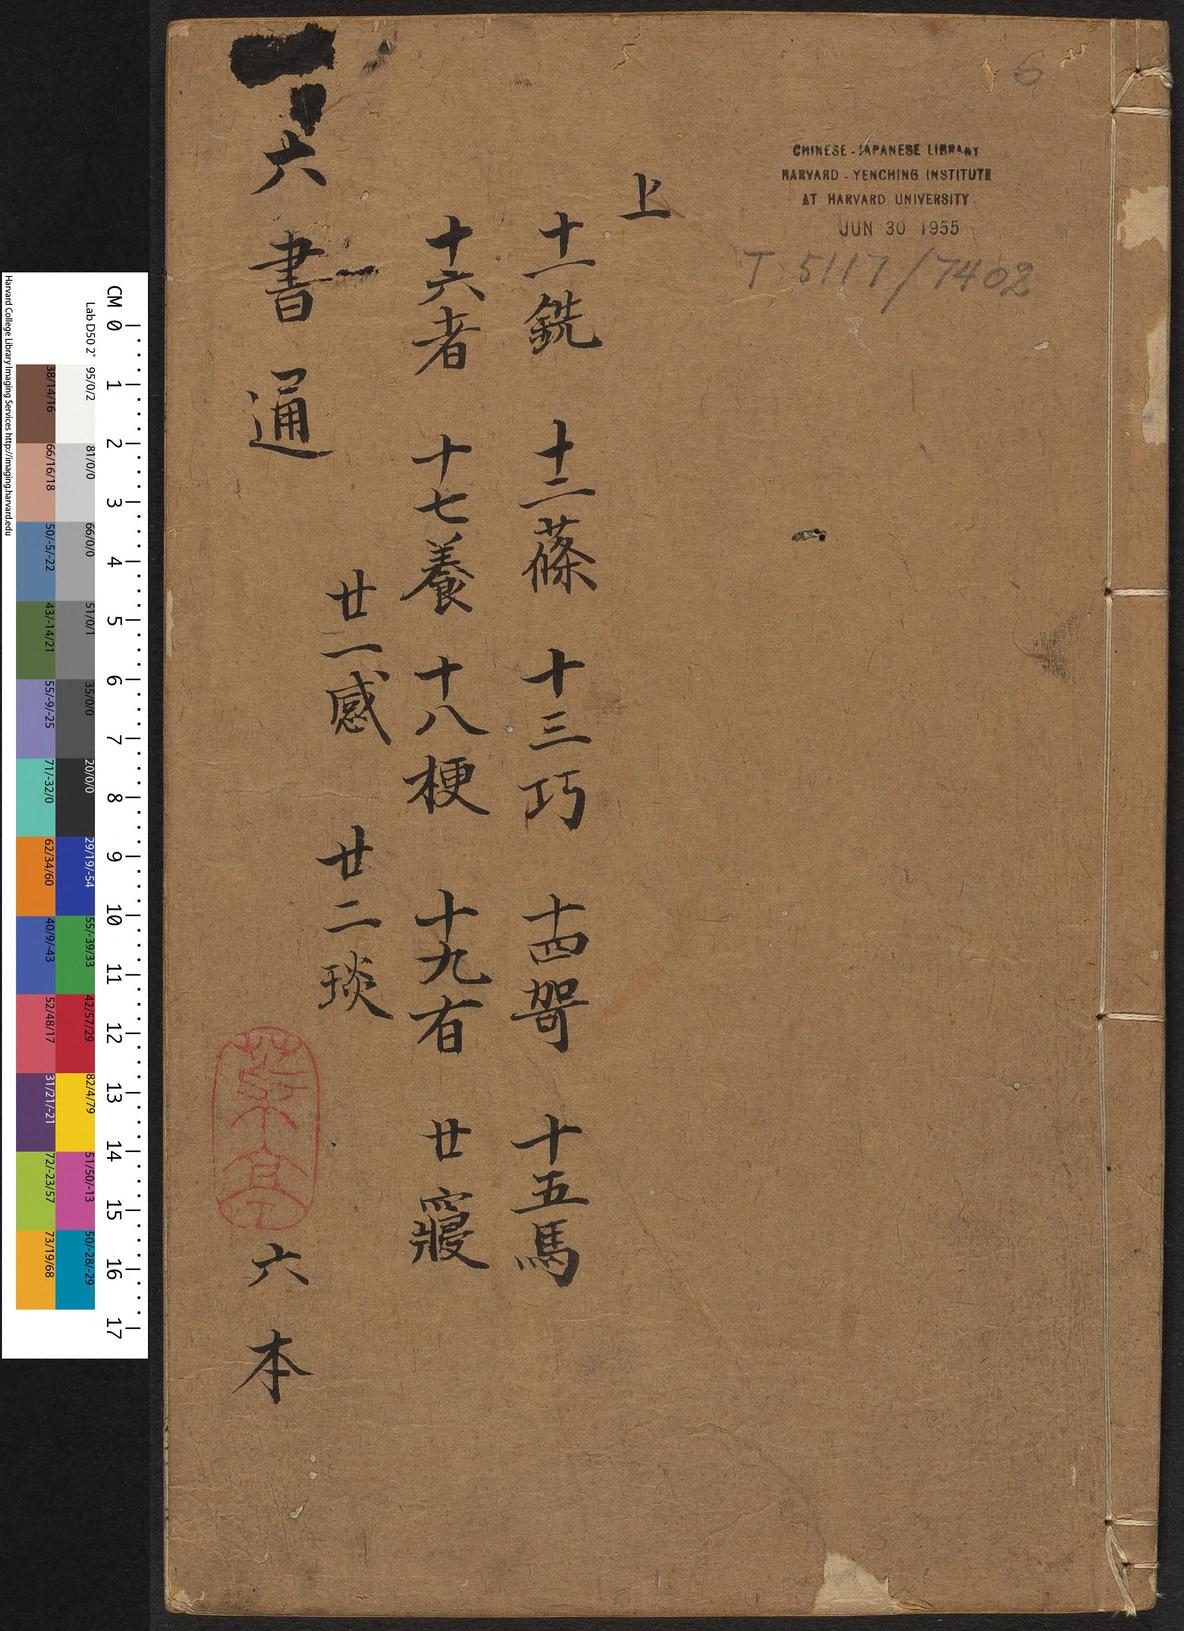 6
CHINESE-JAPANESE LIBRARY
HARVARD-YENCHING INSTITUTE
AT HARVARD UNIVERSITY
JUN 30 1955
T 5117/7402
上
十一銑 十二蓧 十三巧 十四哿 十五馬
十六者 十七養 十八梗 十九有 廿寢
廿一感 廿二琰
六書通 六本
CM 0 1 2 3 4 5 6 7 8 9 10 11 12 13 14 15 16 17
Lab D50 2° 95/0/2 81/0/0 66/0/0 51/0/1 35/0/0 20/0/0 29/19/-54 55/-39/33 42/57/29 82/4/79 51/50/-13 50/-28/-29
38/14/16 66/16/18 50/-5/-22 43/-14/21 55/-9/-25 71/-32/0 62/34/60 40/9/-43 52/48/17 31/21/-21 72/-23/57 73/19/68
Harvard College Library Imaging Services http://imaging.harvard.edu